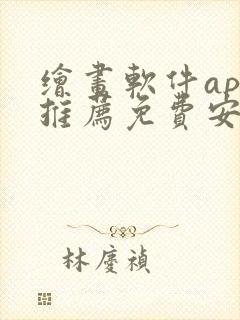 繪畫軟件ap
推薦免費安
林慶禎